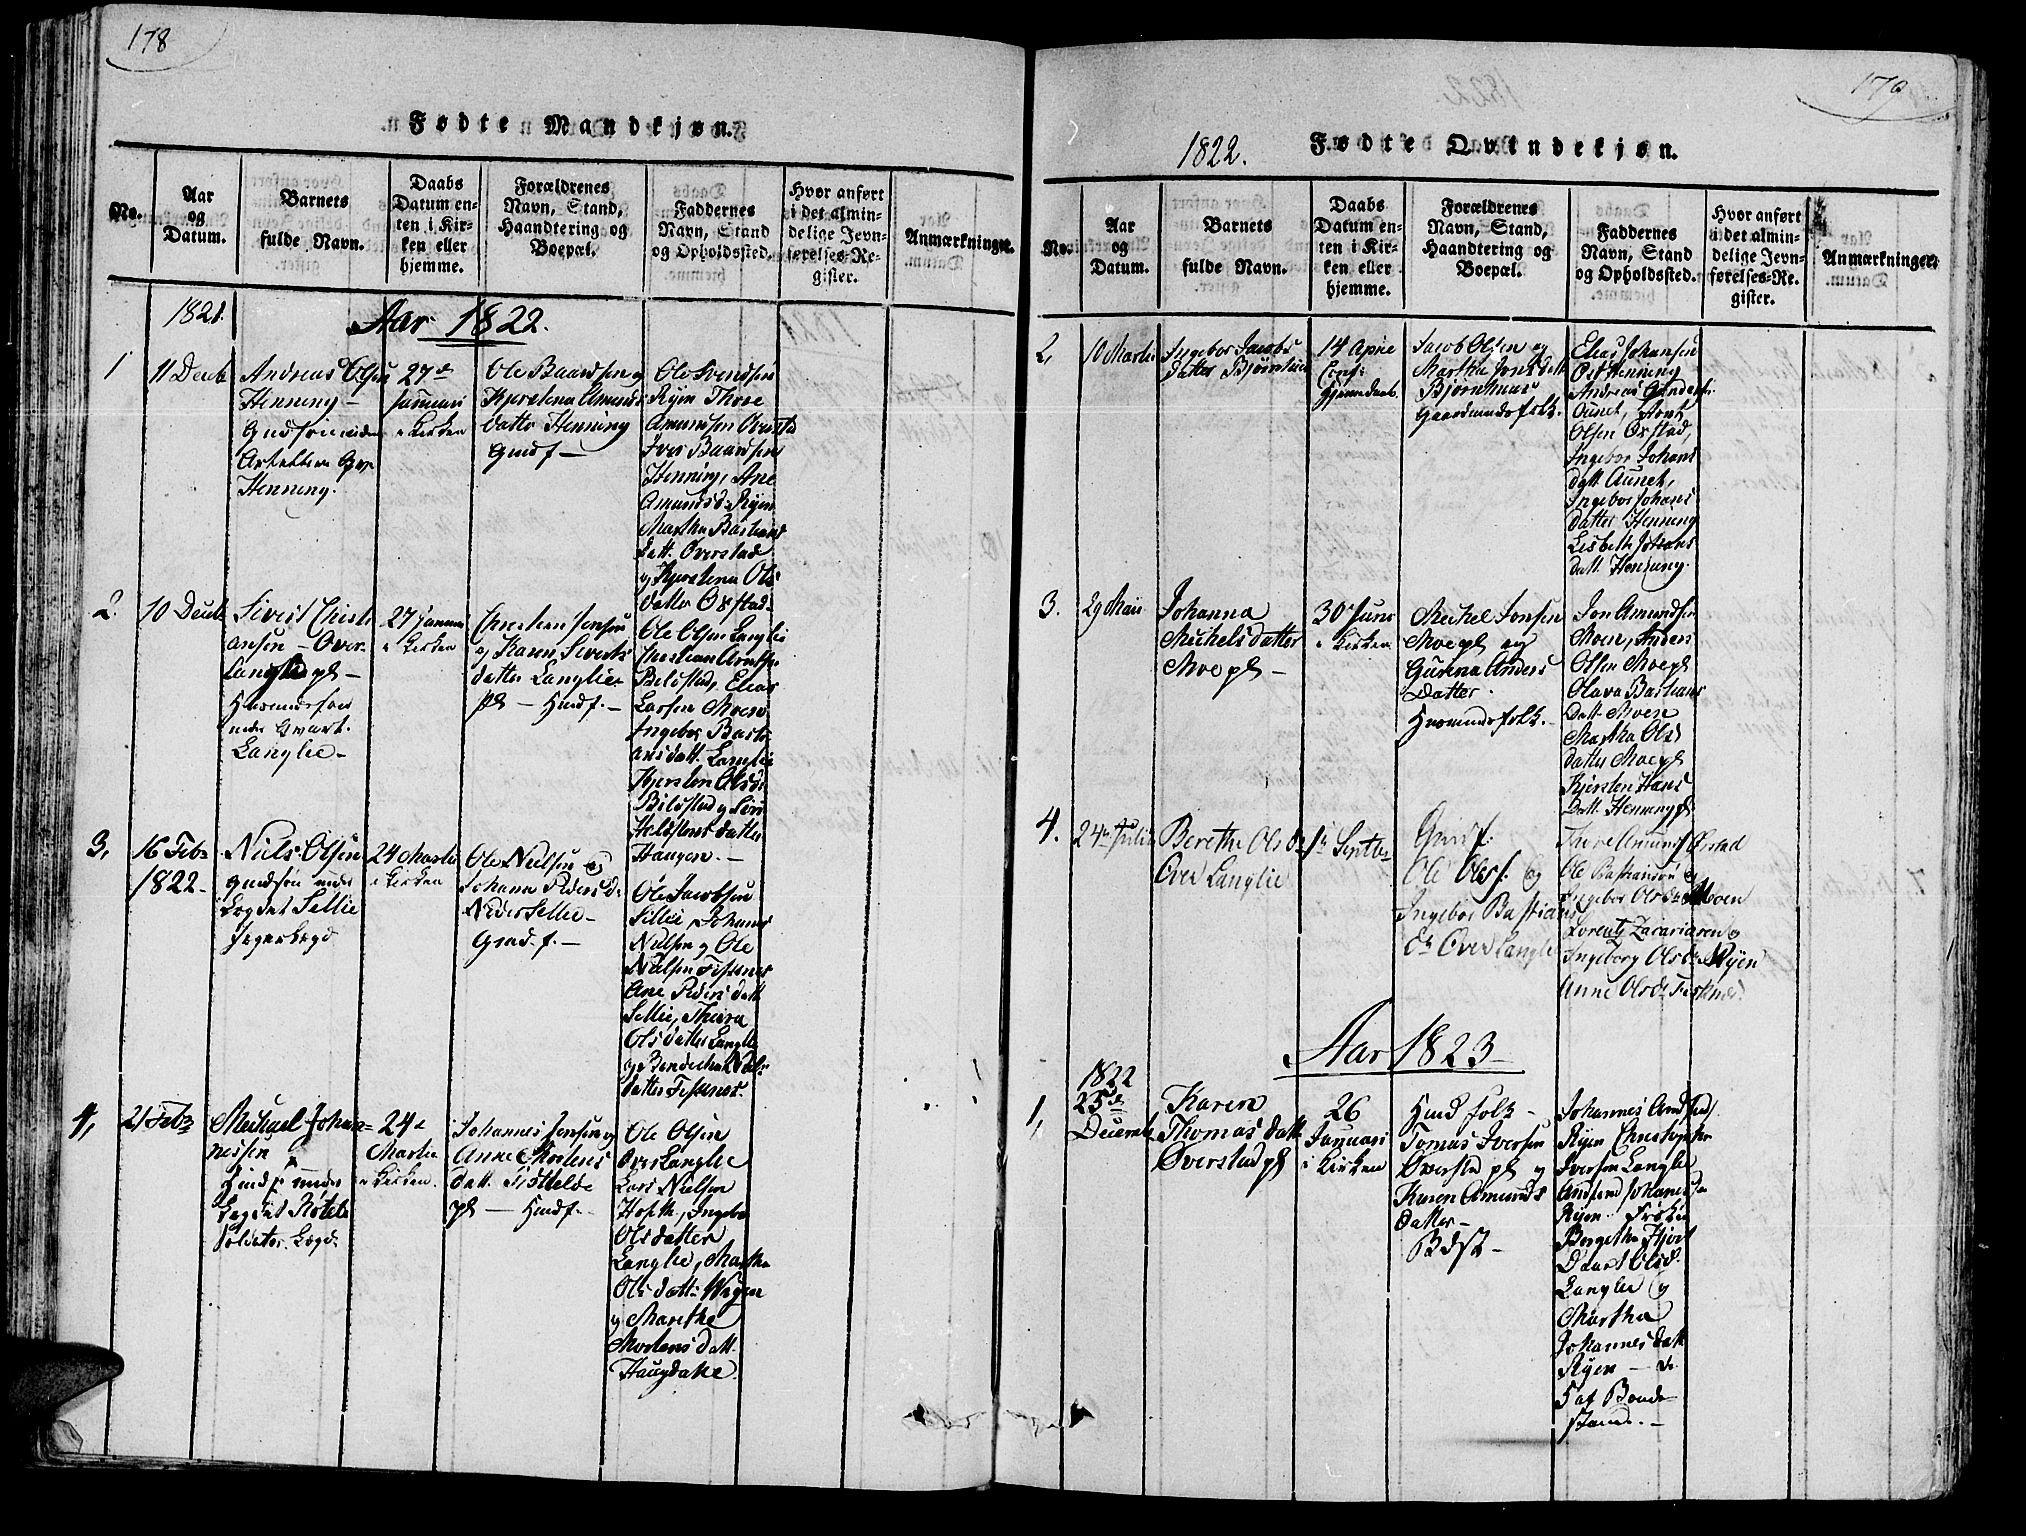 178
Fødte Mandkjøn.
No.
Aar
og
Datum.
Barnets
fulde Navn.
Daabs
Datum en-
ten i Kir-
ken eller
hjemme.
Forældrenes
Navn, Stand,
Haandtering og
Boepæl.
Faddernes
Navn, Stand
og Opholdssted.
Hvor anført
i det almin-
delige Jevn-
førelses-Re-
gister.
Anmærkninger.
1821.
Aar 1822.
1
11 Decb
Andreas Olsen
Henning -
Henning.
27de
Januari
i Kirken
Ole Baardsen og
Kjerstena Amunds
datter Henning
Gmdf -
Ole Svendsen
Ryen Thore
Amundsen Øverstad
Iver Baardsen
Henning, Ane
Amundsd: Ryen
Martha Bastians
datt. Øverstad
og Kjerstena Ols
datter Oxstad
2.
10 Decb
Sivert Christi
ansen - Over
Langlie pl -
Huusmandsøn
under
Langlie -
27 Januar
i Kirken
Christian Jensen
og Karen Siverts
datter Langlie
pl - Hmdf. -
Ole Olsen Langlie
Christian Arntsen
Bilestad, Elias
Larsen Moen
Ingebor Basti
ansdatt. Langlie
Kjersten Olsd:
Bilestad og
datter
Haugen. -
3,
16 Feb:
1822 -
Niels Olsen
Gmdsøn under
Legdet Sellie
Jegerlegd
24 Martii
i Kirken
Ole Nielsen og
Johana Peders d:
Neder Sellie -
Gmd. f. -
Ole Jacobsen
Sellie, Johanes
Nielsen og Ole
Nielsen Fisknes
Ane Peders datt
Sellie, Thora
Olsdatter Langlie
og Niels
datter Fisknes.
4,
21 Feb:
Michael Johan-
nesen
Hmdf under
Legdet
Soldater. Legd:
24de
Martii
i Kirken.
Johannes Jensen og
Anne Mortens
datt.
pl - Hmdf. -
Ole Olsen
Over Langlie
Lars Nielsen
Ingebor
Olsdatter
Langlie, Martha
Olsdatt:
og Marethe
Mortensdatt.
Haugdalle.
179
1822.
Fødte Qvindekjøn.
No.
Aar
og
Datum.
Barnets
fulde Navn.
Daabs
Datum en-
ten i Kir-
ken eller
hjemme.
Forældrenes
Navn, Stand,
Haandtering og
Boepæl.
Faddernes
Navn, Stand
og Opholdssted.
Hvor anført
i det almin-
delige Jevn-
førelses-Re-
gister.
Anmærkninger.
2,
10 Martii
Ingebor Jacobs
datter Bjørnhuus
14 April
Conf:
hjemdaab.
Jacob Olsen og
Martha Jons datt
Bjørnhuus
Gaardmandsfolk.
Elias Johansen
Henning
Andreas
Aunet, Arnt
Olsen Oxstad,
Ingebor Johans
datt. Aunet,
Ingebor Johans
datter Henning
Lisbeth Johans
datt. Henning.
3.
29 Maii
Johanna
Michelsdatter
Moe pl -
30 Juni
i Kirken
Michel Jonsen
Moe pl og
Gurina Anders
Datter.
Huusmandsfolk. -
Jon Amundsen
Moen, Anders
Olsen Moe pl
Olava Bastians
datt. Moen
Martha Ols
datter Moe pl
Kjersten Hans
datt. Henning pl
4.
24 Julii
Berethe Ols d:
Over Langlie
1 Septbr
Gmdf.
Ole Olesf. og
Ingebor Bastians
dr Over Langlie
Thore Amunds Øvstad
Ole Bastianson og
Ingebor Olsdr Moen
Lorentz Zacariasen og
Ingeborg Olsdr Ryen
Anne Olsdr Fisknes
Aar 1823 -
1,
1822
25de
Decemb
Karen
Thomasdatt
Øverstad pl
26
Januari
i Kirken
Hmd folk -
Tomas Iversen
Øverstad pl og
Karen Amunds
datter -
Johannes
Ryen Christopher
Iversen Langlie
Johannesen
Ryen. Frøken
Bergetha Hjort
Olsd.
Langlie og
Martha
Johannesdatt
Ryen - de
5 af Bonde
stand. -